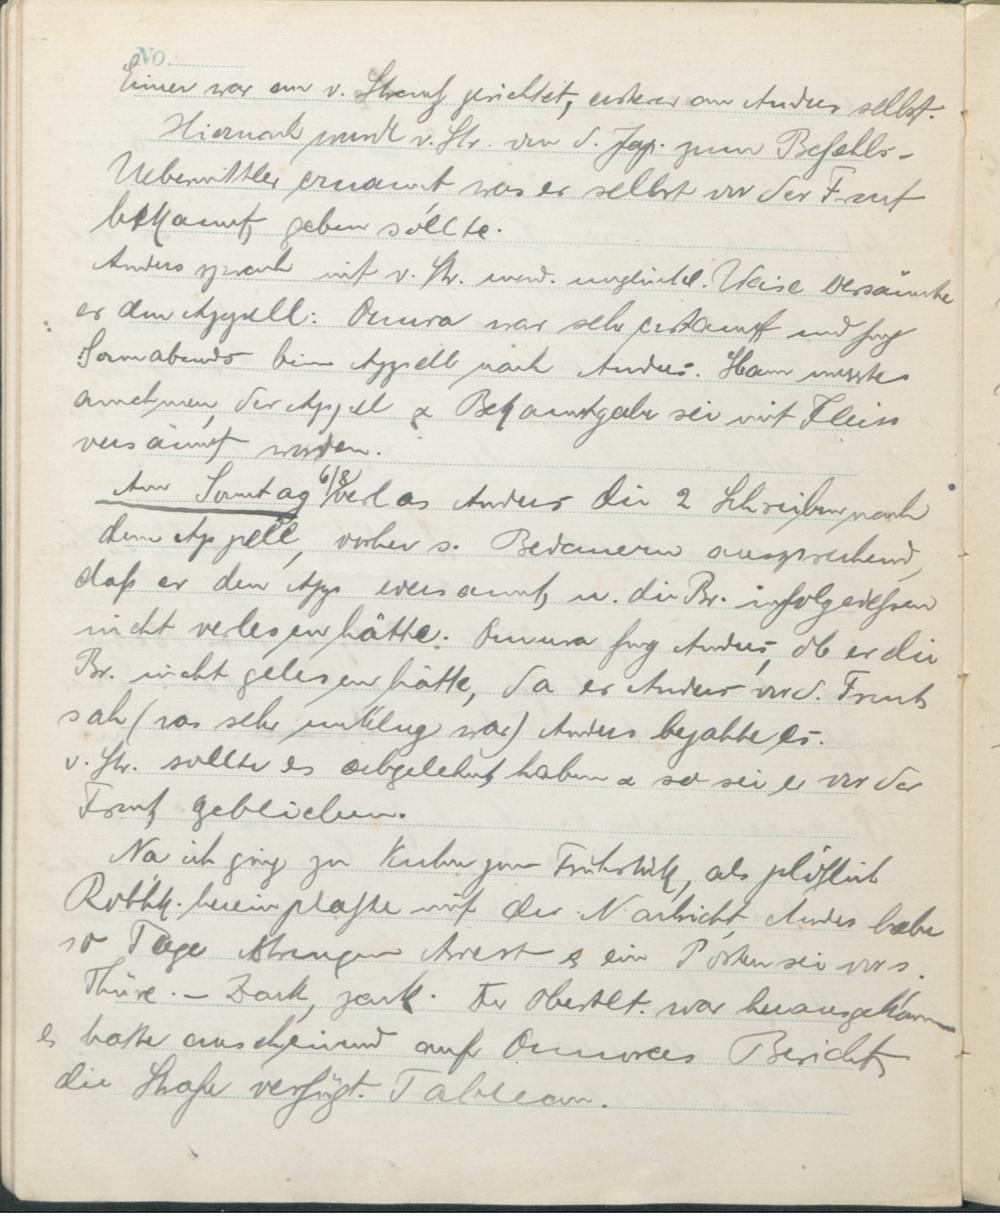 No.
Einer war an v. Strauß gerichtet, ersterer an Anders selbst.
Hiernach wurde v. Str. von d. Jap. zum Befehls-
Uebermittler ernannt, was er selbst vor der Front
bekannt geben sollte.
Anders sprach mit v. Str. unglückl. Weise versäumte
er den Appell: Omura war sehr erstaunt und frug
Sonnabends beim Appell nach Anders. Man musste
annehmen, der Appel & Bekanntgabe sei mit Fleiss
versäumt worden.
Am Sonntag 6/8 verlas Anders die 2 Schreiben nach
dem Appell, vorher s. Bedauern aussprechend,
daß er den App. versäumt, u. die Br. infolgedessen
nicht verlesen hätte. Omura frug Anders, ob er die
Br. nicht gelesen hätte, da er Anders vor d. Front
sah (was sehr unklug war) Anders bejahte es.
v. Str. sollte es abgelehnt haben & so sei er vor der
Front geblieben.
Na ich ging zu Kuhn zum Frühstück, als plötzlich
hereinplatzte mit der Nachricht, Anders habe
10 Tage strengen Arrest & ein Posten sei vor s.
Thüre. – Zack, zack. Der Oberstlt. war herausgekommen
es hatte anscheinend auf Omuras Bericht,
die Strafe verfügt. Tableau.